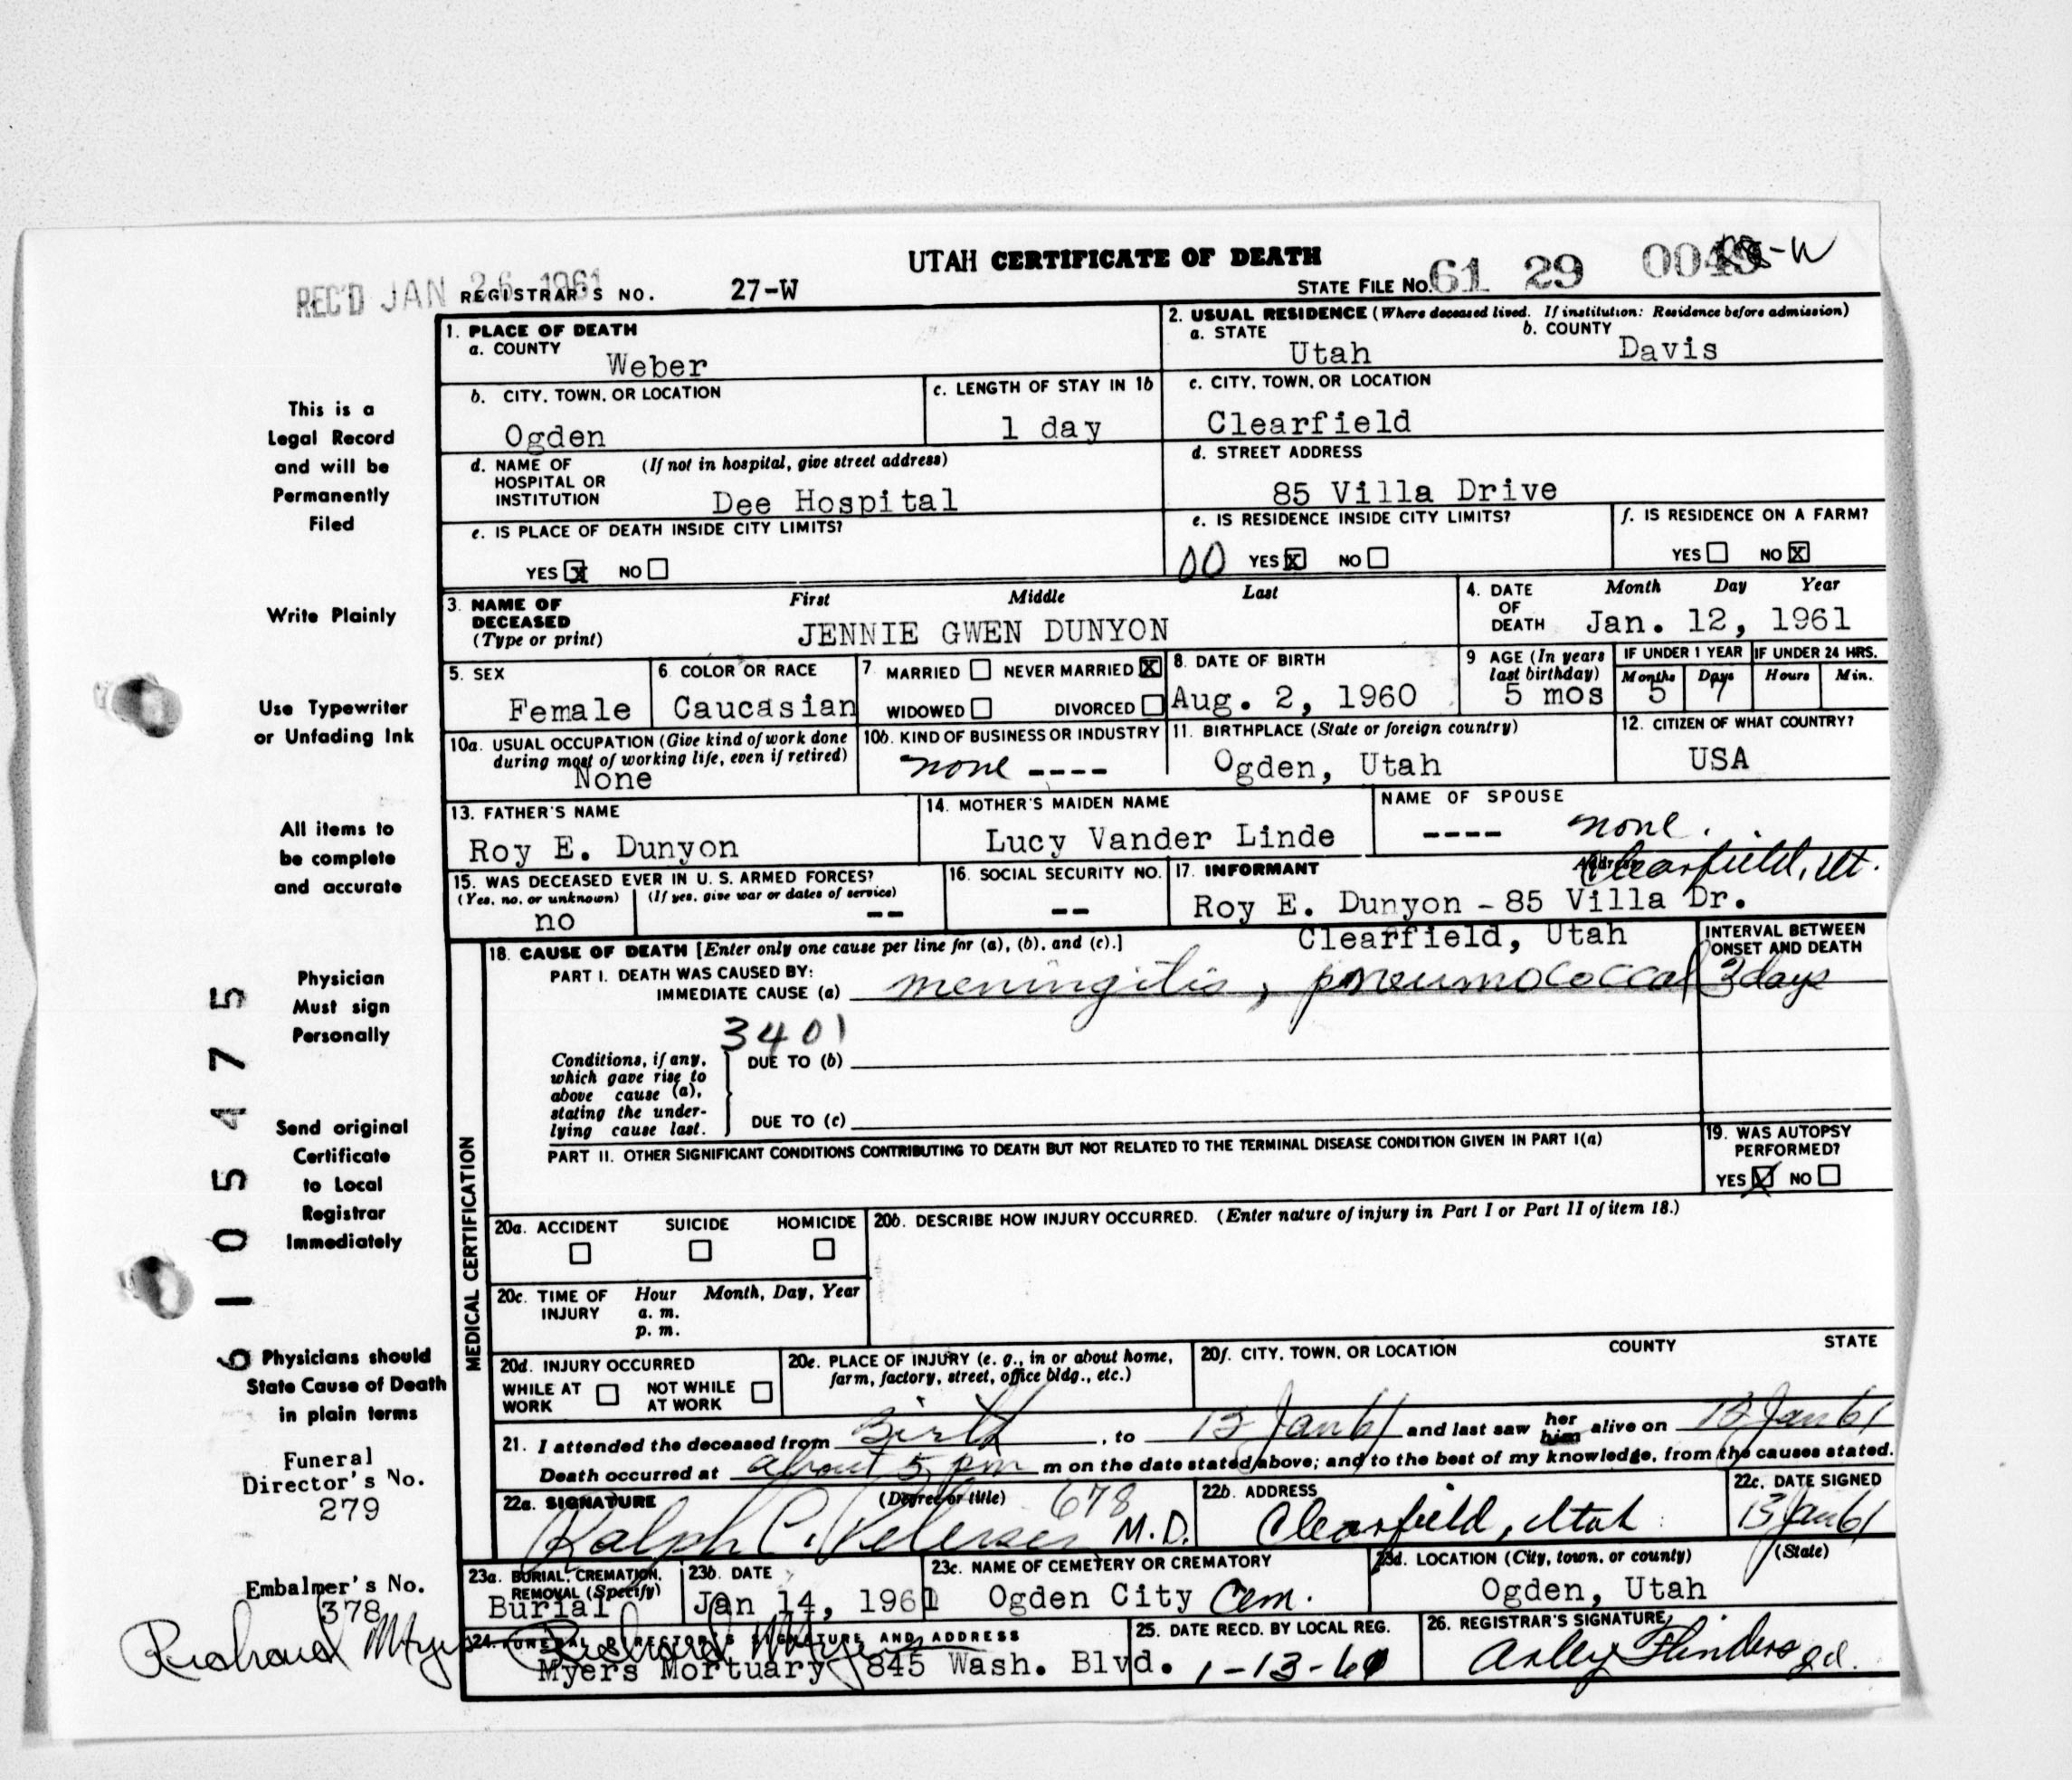 UTAH CERTIFICATE OF DEATH
REC'D JAN 26 1961
REGISTRAR'S NO. 27-W
STATE FILE NO. 61 29
1. PLACE OF DEATH
a. COUNTY
Weber
2. USUAL RESIDENCE (Where deceased lived. If institution: Residence before admission)
a. STATE
Utah
b. COUNTY
Davis
b. CITY, TOWN, OR LOCATION
Ogden
c. LENGTH OF STAY IN 1b
1 day
c. CITY, TOWN, OR LOCATION
Clearfield
d. NAME OF HOSPITAL OR INSTITUTION
(If not in hospital, give street address)
Dee Hospital
d. STREET ADDRESS
85 Villa Drive
e. IS PLACE OF DEATH INSIDE CITY LIMITS?
YES X NO
e. IS RESIDENCE INSIDE CITY LIMITS?
00 YES X NO
f. IS RESIDENCE ON A FARM?
YES NO X
3. NAME OF DECEASED
(Type or print)
First Middle Last
JENNIE GWEN DUNYON
4. DATE OF DEATH
Month Day Year
Jan. 12, 1961
5. SEX
Female
6 COLOR OR RACE
Caucasian
7. MARRIED NEVER MARRIED X
WIDOWED DIVORCED
8. DATE OF BIRTH
Aug. 2, 1960
9 AGE (In years last birthday)
5 mos
IF UNDER 1 YEAR
Months Days
5 7
IF UNDER 24 HRS.
Hours Min.
10a. USUAL OCCUPATION (Give kind of work done
during most of working life, even if retired)
None
10b. KIND OF BUSINESS OR INDUSTRY
none ----
11. BIRTHPLACE (State or foreign country)
Ogden, Utah
12. CITIZEN OF WHAT COUNTRY?
USA
13. FATHER'S NAME
Roy E. Dunyon
14. MOTHER'S MAIDEN NAME
Lucy Vander Linde
NAME OF SPOUSE
---- none.
15. WAS DECEASED EVER IN U. S. ARMED FORCES?
(Yes, no, or unknown) (If yes, give war or dates of service)
no --
16. SOCIAL SECURITY NO.
--
17. INFORMANT Address
Clearfield, Ut.
Roy E. Dunyon - 85 Villa Dr.
Clearfield, Utah
MEDICAL CERTIFICATION
18. CAUSE OF DEATH [Enter only one cause per line for (a), (b), and (c).]
INTERVAL BETWEEN
ONSET AND DEATH
PART I. DEATH WAS CAUSED BY:
IMMEDIATE CAUSE (a) meningitis, pneumococcal 3 days
3401
Conditions, if any,
which gave rise to
above cause (a),
stating the under-
lying cause last.
DUE TO (b)
DUE TO (c)
PART II. OTHER SIGNIFICANT CONDITIONS CONTRIBUTING TO DEATH BUT NOT RELATED TO THE TERMINAL DISEASE CONDITION GIVEN IN PART I(a)
19. WAS AUTOPSY
PERFORMED?
YES X NO
20a. ACCIDENT SUICIDE HOMICIDE
20b. DESCRIBE HOW INJURY OCCURRED. (Enter nature of injury in Part I or Part II of item 18.)
20c. TIME OF INJURY
Hour Month, Day, Year
a. m.
p. m.
20d. INJURY OCCURRED
WHILE AT WORK NOT WHILE AT WORK
20e. PLACE OF INJURY (e. g., in or about home,
farm, factory, street, office bldg., etc.)
20f. CITY, TOWN, OR LOCATION COUNTY STATE
21. I attended the deceased from Birth, to Jan 61 and last saw her him alive on Jan 61
Death occurred at about 5 pm m on the date stated above; and to the best of my knowledge, from the causes stated.
22a. SIGNATURE (Degree or title) 678
Ralph C. Petersen M.D.
22b. ADDRESS
Clearfield, Utah
22c. DATE SIGNED
13 Jan 61
23a. BURIAL, CREMATION,
REMOVAL (Specify)
Burial
23b. DATE
Jan 14, 1961
23c. NAME OF CEMETERY OR CREMATORY
Ogden City Cem.
23d. LOCATION (City, town, or county) (State)
Ogden, Utah
24. FUNERAL DIRECTOR'S SIGNATURE AND ADDRESS
Richard Myers
Myers Mortuary 845 Wash. Blvd.
25. DATE RECD. BY LOCAL REG.
1-13-61
26. REGISTRAR'S SIGNATURE
Arley Flinders
This is a
Legal Record
and will be
Permanently
Filed
Write Plainly
Use Typewriter
or Unfading Ink
All items to
be complete
and accurate
Physician
Must sign
Personally
Send original
Certificate
to Local
Registrar
Immediately
Physicians should
State Cause of Death
in plain terms
Funeral
Director's No.
279
Embalmer's No.
378
Richard Myers
6105475